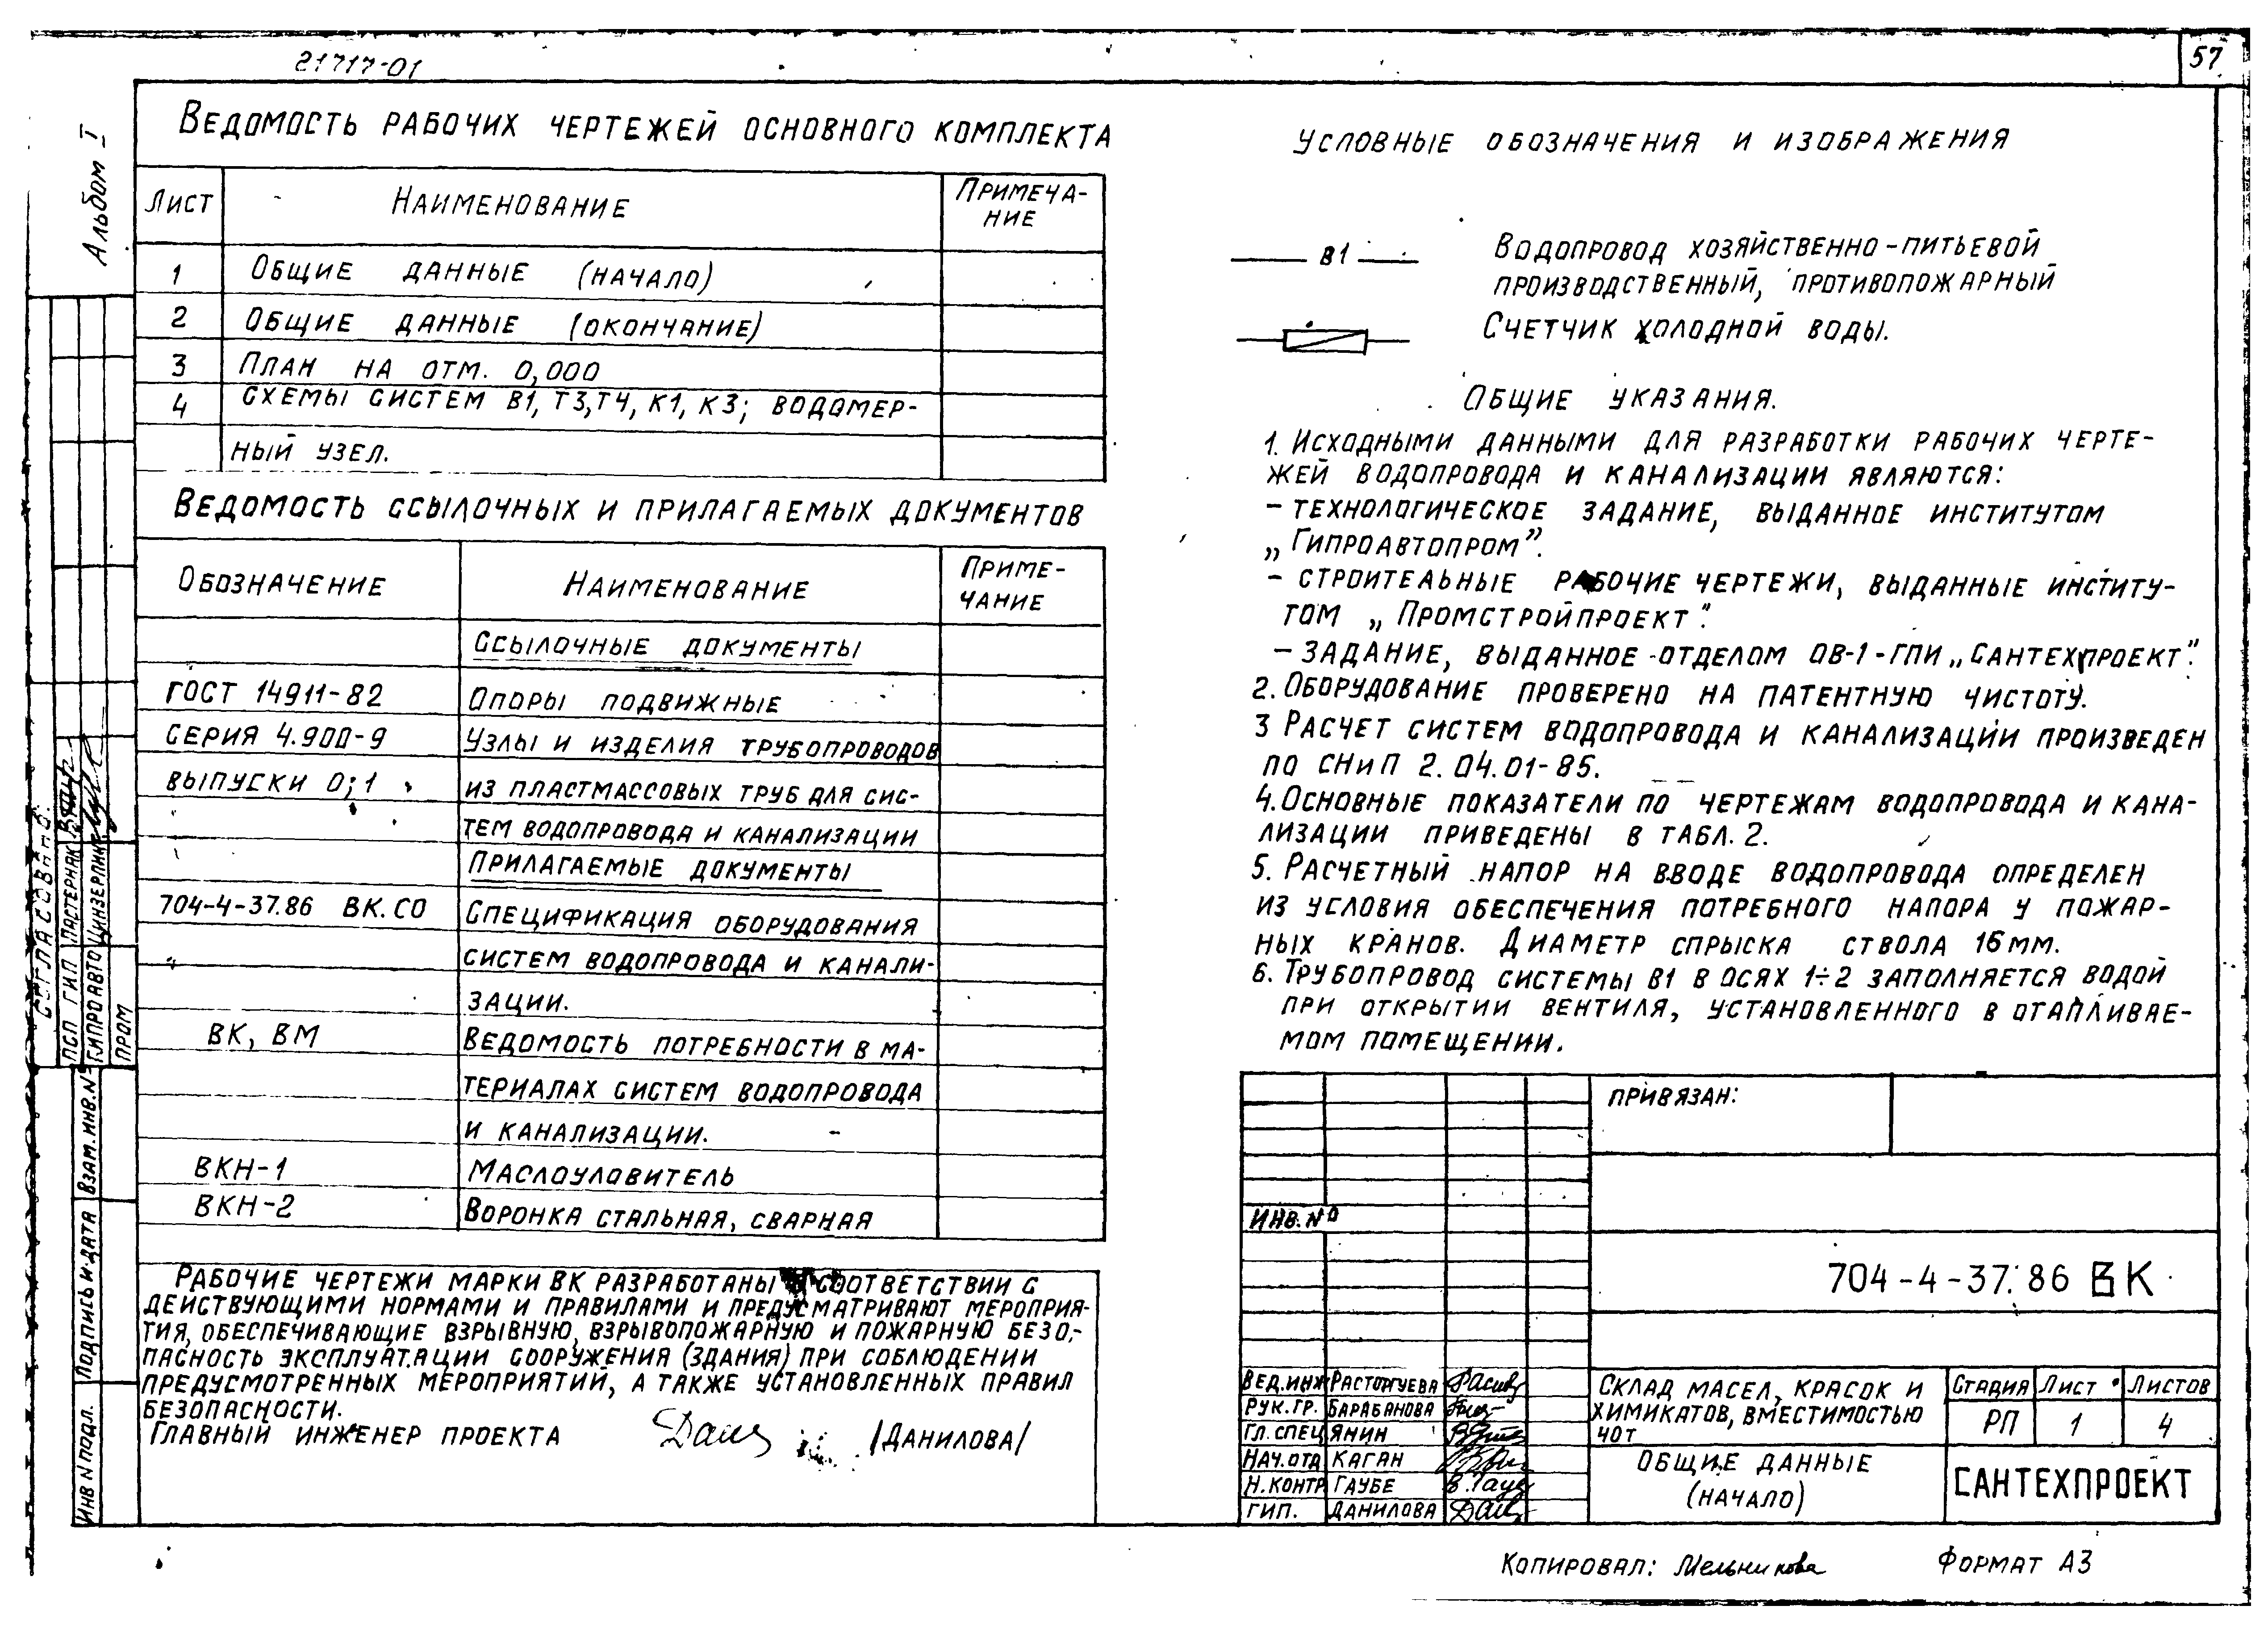 21717-01
57
Альбом I
Ведомость рабочих чертежей основного комплекта
Лист
Наименование
Примеча-
ние
1
Общие данные (начало)
2
Общие данные (окончание)
3
План на отм. 0,000
4
Схемы систем В1, Т3, Т4, К1, К3; водомер-
ный узел.
Ведомость ссылочных и прилагаемых документов
Обозначение
Наименование
Приме-
чание
Ссылочные документы
ГОСТ 14911-82
Опоры подвижные
Серия 4.900-9
Узлы и изделия трубопроводов
выпуски 0; 1
из пластмассовых труб для сис-
тем водопровода и канализации
Прилагаемые документы
704-4-37.86 ВК.СО
Спецификация оборудования
систем водопровода и канали-
зации.
ВК, ВМ
Ведомость потребности в ма-
териалах систем водопровода
и канализации.
ВКН-1
Маслоуловитель
ВКН-2
Воронка стальная, сварная
Рабочие чертежи марки ВК разработаны в соответствии с
действующими нормами и правилами и предусматривают мероприя-
тия, обеспечивающие взрывную, взрывопожарную и пожарную безо-
пасность эксплуатации сооружения (здания) при соблюдении
предусмотренных мероприятий, а также установленных правил
безопасности.
Главный инженер проекта /Данилова/
Условные обозначения и изображения
В1
Водопровод хозяйственно-питьевой
производственный, противопожарный
Счетчик холодной воды.
Общие указания.
1. Исходными данными для разработки рабочих черте-
жей водопровода и канализации являются:
- технологическое задание, выданное институтом
„Гипроавтопром".
- строительные рабочие чертежи, выданные институ-
том „Промстройпроект".
- задание, выданное отделом ОВ-1-ГПИ „Сантехпроект".
2. Оборудование проверено на патентную чистоту.
3 Расчет систем водопровода и канализации произведен
по СНиП 2.04.01-85.
4. Основные показатели по чертежам водопровода и кана-
лизации приведены в табл. 2.
5. Расчетный напор на вводе водопровода определен
из условия обеспечения потребного напора у пожар-
ных кранов. Диаметр спрыска ствола 16мм.
6. Трубопровод системы В1 в осях 1÷2 заполняется водой
при открытии вентиля, установленного в отапливае-
мом помещении.
Привязан:
Инв. №
704-4-37.86 ВК
Вед.инж Расторгуева
Рук.гр. Барабанова
Гл.спец Янин
Нач.отд Каган
Н.контр Гаубе
ГИП. Данилова
Склад масел, красок и
химикатов, вместимостью
40т
Стадия
Лист
Листов
РП
1
4
Общие данные
(начало)
САНТЕХПРОЕКТ
Согласовано:
ПСП ГИП Пастернак
Гипроавто Цинзерлинг
пром
Взам. инв. №
Подпись и дата
Инв N подл.
Копировал: Мельникова
Формат А3